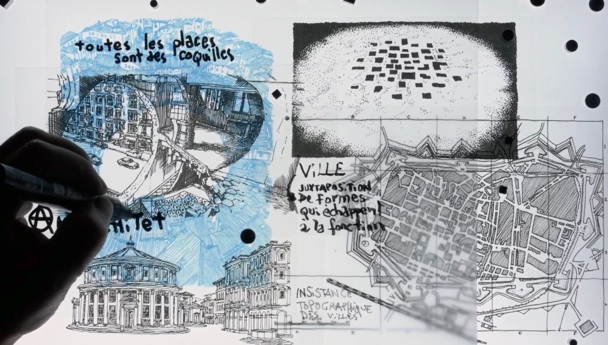 toutes les places
sont des coquilles
VILLE
JUXTAPOSITION
DE FORMES
QUI échappent
à la fonction
INSISTANCE
TOPOGRAPHIQUE
DES VILLES